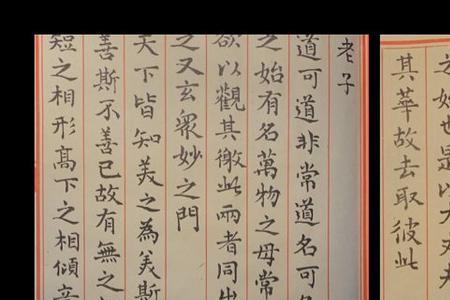 老子
道可道非常道名可名
之始有名萬物之母常
欲以觀其徼此兩者同出
之又玄衆妙之門
天下皆知美之為美斯
善斯不善已故有無之
短之相形高下之相傾音
也是以大丈夫
其華故去取彼此